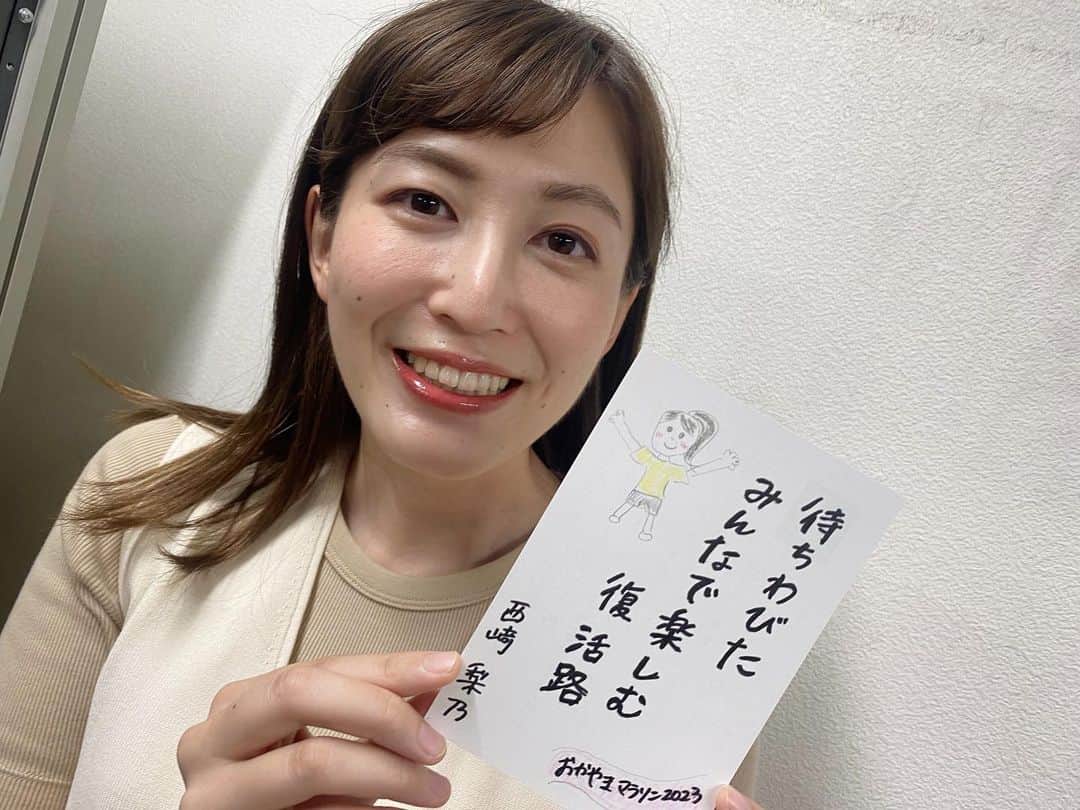 待ちわびた
みんなで楽しむ
復活路
西崎 梨乃
おかやまマラソン2023